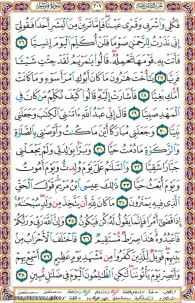 فَكُلِي وَاشْرَبِي وَقَرِّي عَيْنًا فَإِمَّا تَرَيِنَّ مِنَ الْبَشَرِ أَحَدًا فَقُولِي
إِنِّي نَذَرْتُ لِلرَّحْمَٰنِ صَوْمًا فَلَنْ أُكَلِّمَ الْيَوْمَ إِنْسِيًّا ٢٦
فَأَتَتْ بِهِ قَوْمَهَا تَحْمِلُهُ قَالُوا يَا مَرْيَمُ لَقَدْ جِئْتِ شَيْئًا
فَرِيًّا ٢٧ يَا أُخْتَ هَارُونَ مَا كَانَ أَبُوكِ امْرَأَ سَوْءٍ وَمَا كَانَتْ
أُمُّكِ بَغِيًّا ٢٨ فَأَشَارَتْ إِلَيْهِ قَالُوا كَيْفَ نُكَلِّمُ مَنْ كَانَ فِي
الْمَهْدِ صَبِيًّا ٢٩ قَالَ إِنِّي عَبْدُ اللَّهِ آتَانِيَ الْكِتَابَ وَجَعَلَنِي
نَبِيًّا ٣٠ وَجَعَلَنِي مُبَارَكًا أَيْنَ مَا كُنْتُ وَأَوْصَانِي بِالصَّلَاةِ
وَالزَّكَاةِ مَا دُمْتُ حَيًّا ٣١ وَبَرًّا بِوَالِدَتِي وَلَمْ يَجْعَلْنِي
جَبَّارًا شَقِيًّا ٣٢ وَالسَّلَامُ عَلَيَّ يَوْمَ وُلِدْتُ وَيَوْمَ أَمُوتُ
وَيَوْمَ أُبْعَثُ حَيًّا ٣٣ ذَٰلِكَ عِيسَى ابْنُ مَرْيَمَ قَوْلَ الْحَقِّ
الَّذِي فِيهِ يَمْتَرُونَ ٣٤ مَا كَانَ لِلَّهِ أَنْ يَتَّخِذَ مِنْ وَلَدٍ سُبْحَانَهُ
إِذَا قَضَىٰ أَمْرًا فَإِنَّمَا يَقُولُ لَهُ كُنْ فَيَكُونُ ٣٥ وَإِنَّ اللَّهَ رَبِّي وَرَبُّكُمْ
فَاعْبُدُوهُ هَٰذَا صِرَاطٌ مُسْتَقِيمٌ ٣٦ فَاخْتَلَفَ الْأَحْزَابُ مِنْ
بَيْنِهِمْ فَوَيْلٌ لِلَّذِينَ كَفَرُوا مِنْ مَشْهَدِ يَوْمٍ عَظِيمٍ ٣٧ أَسْمِعْ بِهِمْ
وَأَبْصِرْ يَوْمَ يَأْتُونَنَا لَٰكِنِ الظَّالِمُونَ الْيَوْمَ فِي ضَلَالٍ مُبِينٍ ٣٨